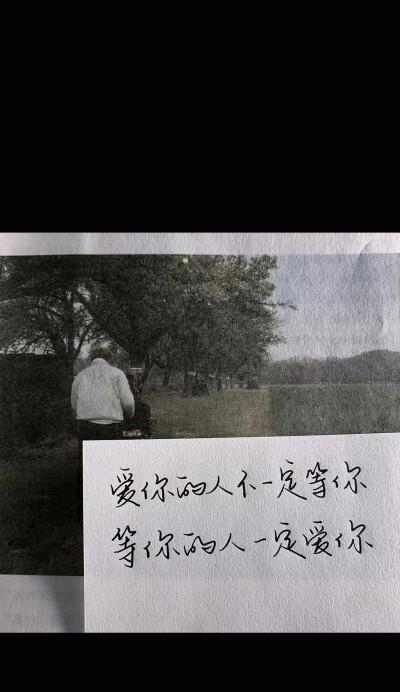 爱你的人不一定等你
等你的人一定爱你